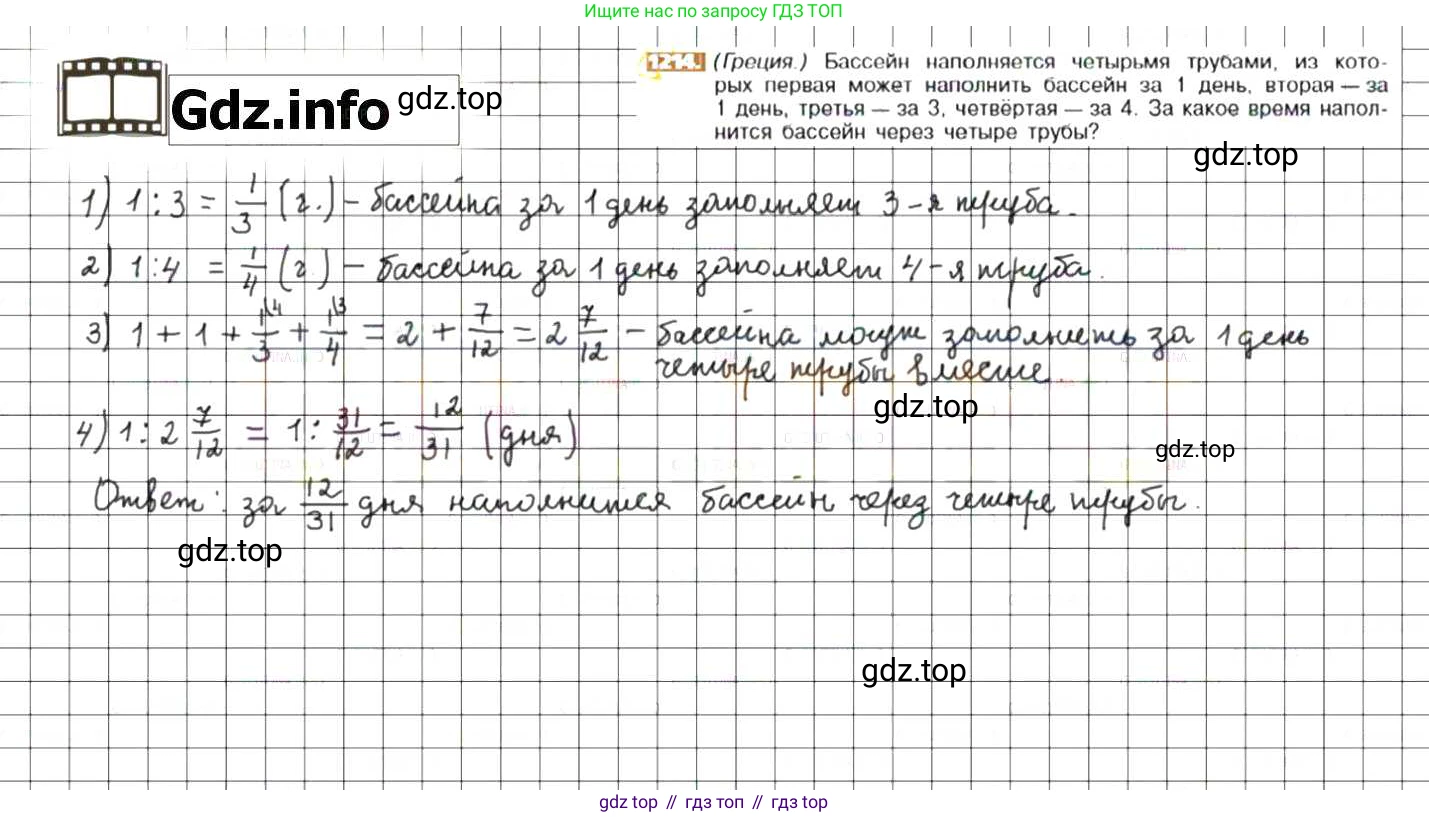 Ищите нас по запросу ГДЗ ТОП
Gdz.info gdz.top
1214. (Греция.) Бассейн наполняется четырьмя трубами, из кото-
рых первая может наполнить бассейн за 1 день, вторая — за
1 день, третья — за 3, четвёртая — за 4. За какое время напол-
нится бассейн через четыре трубы?
gdz.top
1) 1 : 3 = 1/3 (г.) – бассейна за 1 день заполняет 3-я труба.
2) 1 : 4 = 1/4 (г.) – бассейна за 1 день заполняет 4-я труба.
3) 1 + 1 + 1\4/3 + 1\3/4 = 2 + 7/12 = 2 7/12 – бассейна могут заполнить за 1 день
четыре трубы вместе.
gdz.top
4) 1 : 2 7/12 = 1 : 31/12 = 12/31 (дня)
gdz.top
Ответ: за 12/31 дня наполнится бассейн через четыре трубы.
gdz.top
gdz.top
gdz top // гдз топ // гдз top